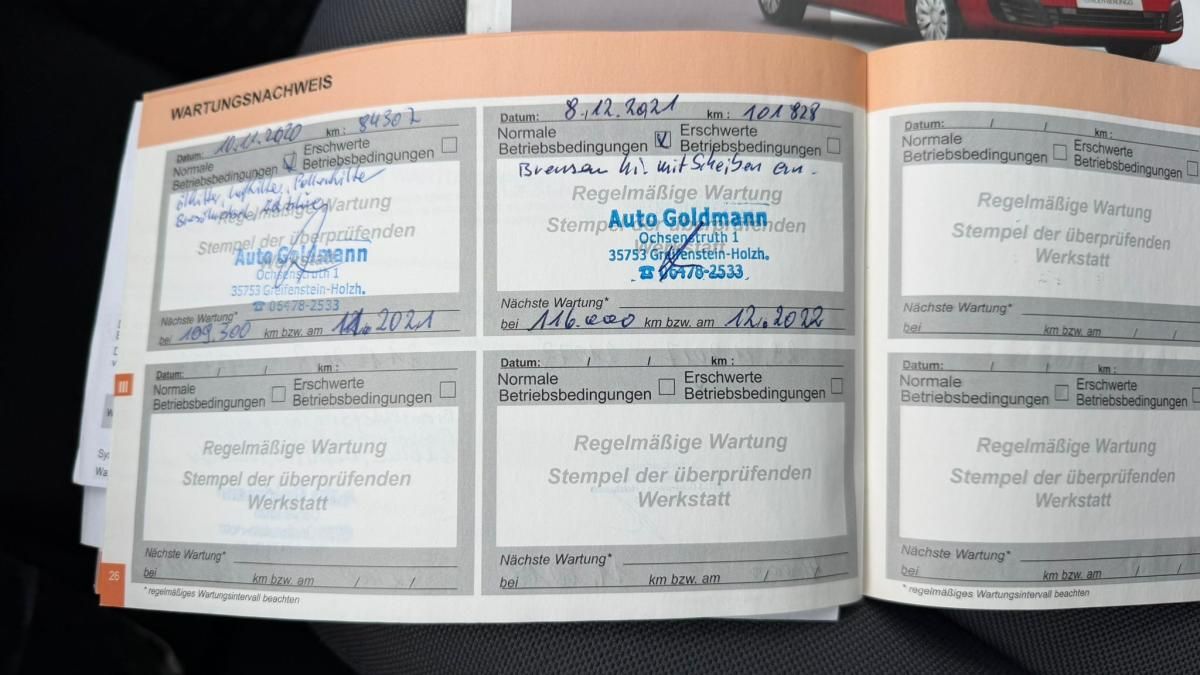 WARTUNGSNACHWEIS
Datum: 10.11.2020 km: 84307
Normale Betriebsbedingungen
Erschwerte Betriebsbedingungen
Ölfilter, Luftfilter, Pollenfilter
Regelmäßige Wartung
Stempel der überprüfenden
Werkstatt
Auto Goldmann
Ochsenstruth 1
35753 Greifenstein-Holzh.
☎ 06478-2533
Nächste Wartung*
bei 109.300 km bzw. am 2021
Datum: 8.12.2021 km: 101828
Normale Betriebsbedingungen
Erschwerte Betriebsbedingungen
Bremsen hi. mit Scheiben ern.
Regelmäßige Wartung
Stempel der überprüfenden
Werkstatt
Auto Goldmann
Ochsenstruth 1
35753 Greifenstein-Holzh.
☎ 06478-2533
Nächste Wartung*
bei 116.000 km bzw. am 12.2022
Datum: / / km:
Normale Betriebsbedingungen
Erschwerte Betriebsbedingungen
Regelmäßige Wartung
Stempel der überprüfenden
Werkstatt
Nächste Wartung*
bei km bzw. am / /
III
Datum: / / km:
Normale Betriebsbedingungen
Erschwerte Betriebsbedingungen
Regelmäßige Wartung
Stempel der überprüfenden
Werkstatt
Nächste Wartung*
bei km bzw. am / /
Datum: / / km:
Normale Betriebsbedingungen
Erschwerte Betriebsbedingungen
Regelmäßige Wartung
Stempel der überprüfenden
Werkstatt
Nächste Wartung*
bei km bzw. am / /
Datum: / / km:
Normale Betriebsbedingungen
Erschwerte Betriebsbedingungen
Regelmäßige Wartung
Stempel der überprüfenden
Werkstatt
Nächste Wartung*
bei km bzw. am / /
26
* regelmäßiges Wartungsintervall beachten
* regelmäßiges Wartungsintervall beachten